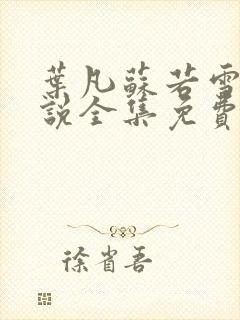 葉凡蘇若雪
說全集免費
徐省吾